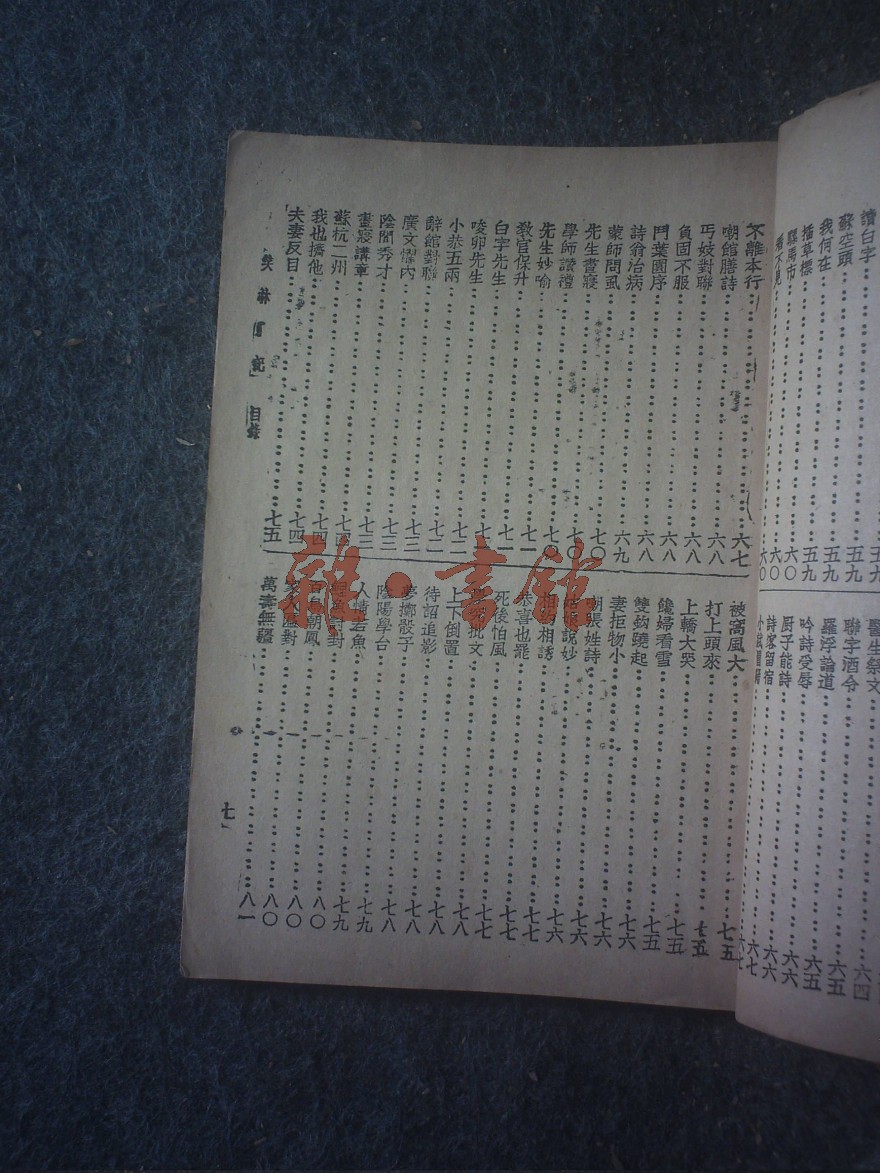 讀白字……五九
蘇空頭……五九
我何在……五九
插草標……五九
騾馬市……六〇
看不見……六〇
醫生祭文……六四
聯字酒令……六五
羅浮論道……六五
吟詩受辱……六六
厨子能詩……六六
詩客留宿……六七
不離本行……六七
嘲館膳詩……六八
丐妓對聯……六八
負固不服……六八
鬥葉園序……六八
詩翁治病……六九
蒙師問虱……七〇
先生晝寢……七〇
學師讀禮……七〇
先生妙喻……七一
教官保升……七一
白字先生
唆卵先生
小恭五兩
辭館對聯
廣文懼內
陰間秀才
晝寢講章
蘇杭二州……七四
我也擠他……七四
夫妻反目……七五
被窩風大……七五
打上頭來……七五
上轎大哭……七五
饞婦看雪……七五
雙鈎蹺起……七六
妻拒物小……七六
嘲張姓詩……七六
說妙……七六
相誘……七七
恭喜也罷……七七
死後怕風……七七
批文……七八
上下倒置……七八
待詔追影……七八
夢擲骰子……七八
陰陽學台……七九
人情若魚……七九
對……八〇
朝鳳……八〇
對……八〇
萬壽無疆……八一
目錄
七
雜·書館